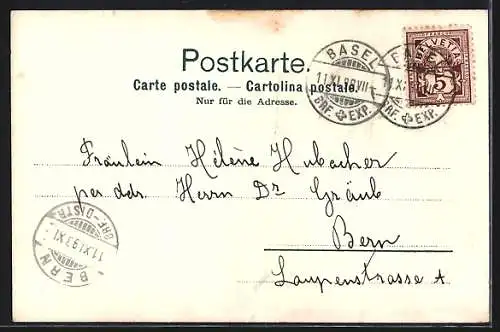 Postkarte.
Carte postale. — Cartolina postale.
Nur für die Adresse.
BASEL
11.XI.99.VII-
BRF. EXP.
HELVETIA
FRANCO
5
11.XI.
EXP.
Fräulein Hélène Hubacher
per adr. Herrn Dr Gräub
Bern
Laupenstrasse 4
BRF-DISTR.
11.XI.99.XI
BERN